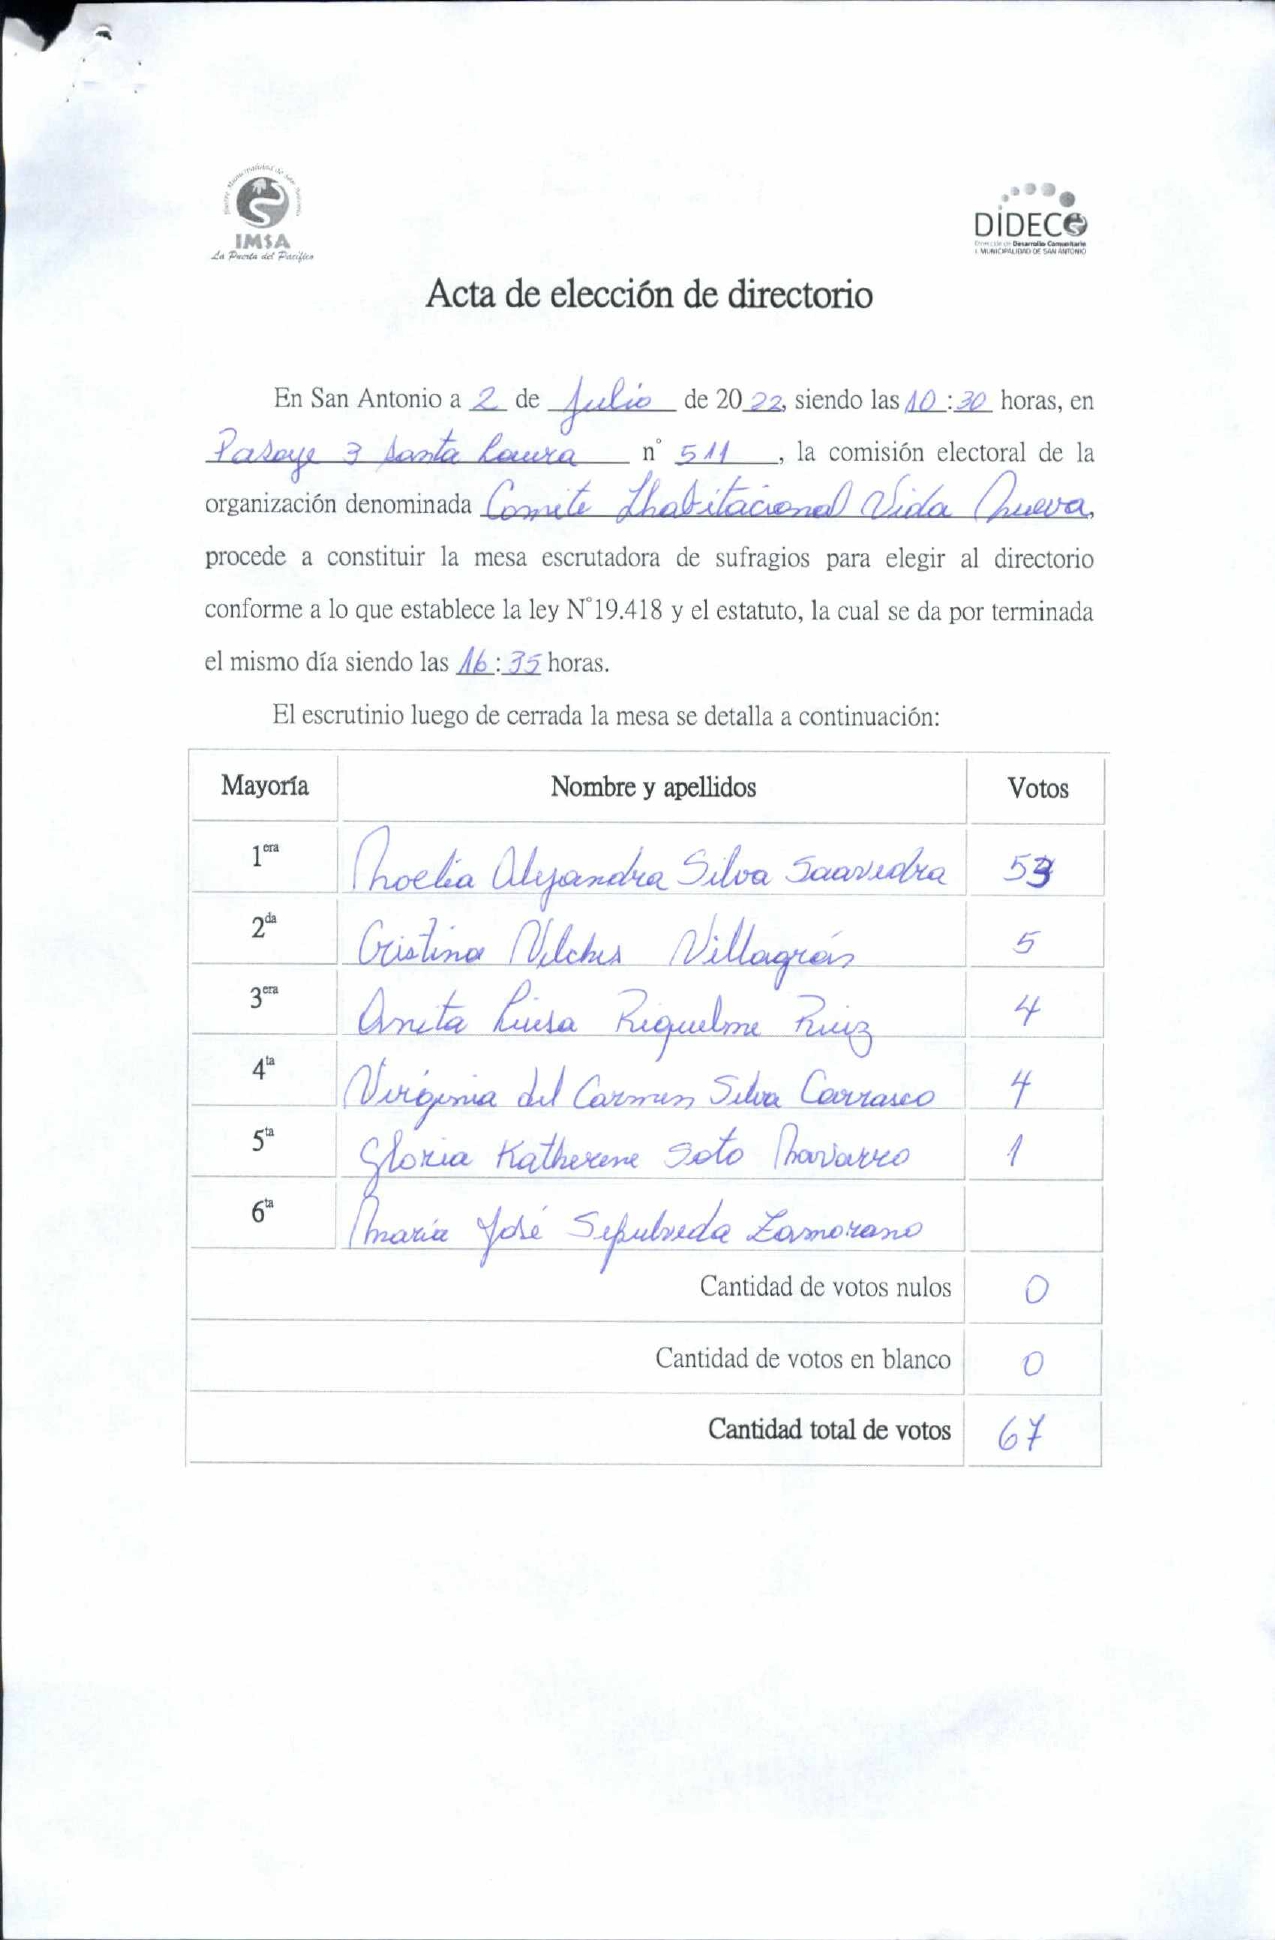 IMSA
La Puerta del Pacífico
DIDECO
Dirección de Desarrollo Comunitario
I. MUNICIPALIDAD DE SAN ANTONIO
Acta de elección de directorio
En San Antonio a 2 de Julio de 2022, siendo las 10:30 horas, en
Pasaje 3 Santa Laura n° 511, la comisión electoral de la
organización denominada Comite Habitacional Vida Nueva,
procede a constituir la mesa escrutadora de sufragios para elegir al directorio
conforme a lo que establece la ley N°19.418 y el estatuto, la cual se da por terminada
el mismo día siendo las 16:35 horas.
El escrutinio luego de cerrada la mesa se detalla a continuación:
Mayoría Nombre y apellidos Votos
1era Noelia Alejandra Silva Saavedra 53
2da Cristina Vilches Villagrán 5
3era Anita Luisa Riquelme Ruiz 4
4ta Virginia del Carmen Silva Carrasco 4
5ta Gloria Katherene Soto Navarro 1
6ta Maria José Sepulveda Zamorano
Cantidad de votos nulos 0
Cantidad de votos en blanco 0
Cantidad total de votos 67